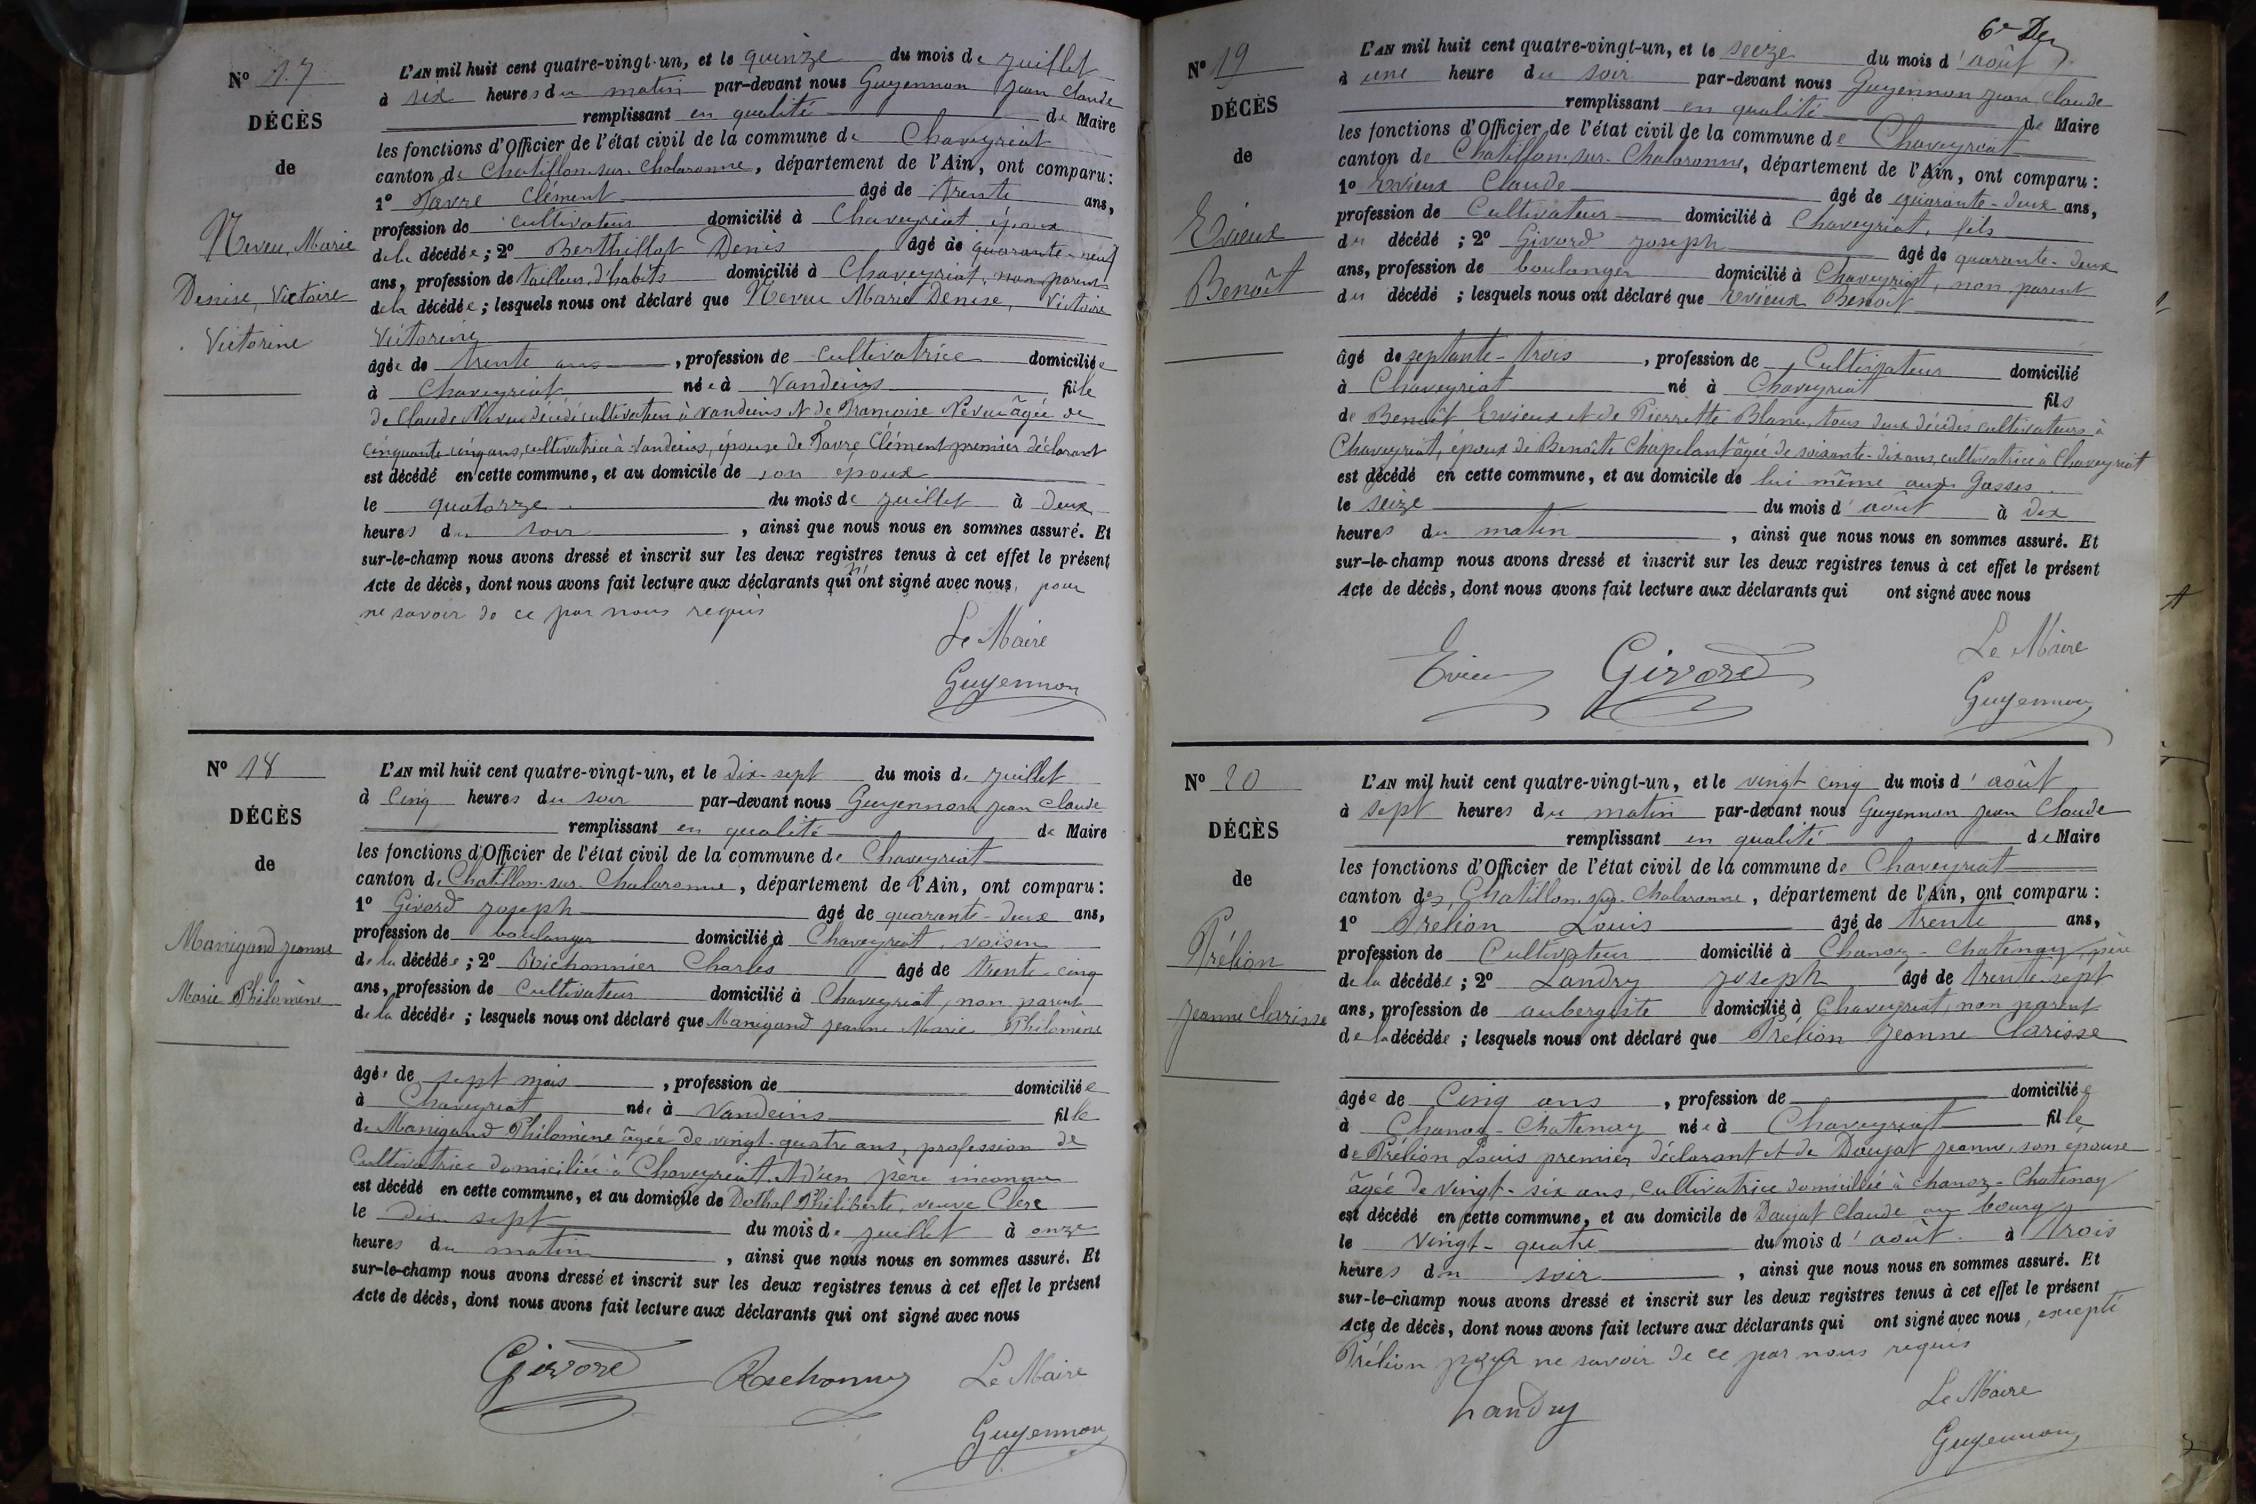 N° 17
DÉCÈS
de
Neveu, Marie
Denise, Victoire
Victorine
L'AN mil huit cent quatre-vingt-un, et le quinze du mois de juillet
à six heures du matin par-devant nous Guyennon Jean Claude
remplissant en qualité de Maire
les fonctions d'Officier de l'état civil de la commune de Chaveyriat
canton de Chatillon-sur-Chalaronne, département de l'Ain, ont comparu :
1° Favre Clément âgé de trente ans,
profession de cultivateur domicilié à Chaveyriat, époux
de la décédée ; 2° Berthillot Denis âgé de quarante-neuf
ans, profession de tailleur d'habits domicilié à Chaveyriat, non parent
de la décédée ; lesquels nous ont déclaré que Neveu Marie Denise, Victoire
Victorine
âgée de trente ans, profession de cultivatrice domiciliée
à Chaveyriat née à Vandeins fille
de Claude Neveu décédé cultivateur à Vandeins et de Françoise Neveu âgée de
cinquante-cinq ans, cultivatrice à Vandeins, épouse de Favre Clément premier déclarant
est décédé en cette commune, et au domicile de son époux
le quatorze du mois de juillet à deux
heures du soir, ainsi que nous nous en sommes assuré. Et
sur-le-champ nous avons dressé et inscrit sur les deux registres tenus à cet effet le présent
Acte de décès, dont nous avons fait lecture aux déclarants qui n'ont signé avec nous, pour
ne savoir de ce par nous requis
Le Maire
Guyennon
N° 18
DÉCÈS
de
Manigand Jeanne
Marie Philomène
L'AN mil huit cent quatre-vingt-un, et le dix-sept du mois de juillet
à cinq heures du soir par-devant nous Guyennon Jean Claude
remplissant en qualité de Maire
les fonctions d'Officier de l'état civil de la commune de Chaveyriat
canton de Chatillon-sur-Chalaronne, département de l'Ain, ont comparu :
1° Givord Joseph âgé de quarante-deux ans,
profession de boulanger domicilié à Chaveyriat, voisin
de la décédée ; 2° Richonnier Charles âgé de trente-cinq
ans, profession de cultivateur domicilié à Chaveyriat, non parent
de la décédée ; lesquels nous ont déclaré que Manigand Jeanne Marie Philomène
âgée de sept mois, profession de domiciliée
à Chaveyriat née à Vandeins fille
de Manigand Philomène âgée de vingt-quatre ans, profession de
cultivatrice domiciliée à Chaveyriat et d'un père inconnu
est décédé en cette commune, et au domicile de Dothal Philiberte, veuve Clerc
le dix-sept du mois de juillet à onze
heures du matin, ainsi que nous nous en sommes assuré. Et
sur-le-champ nous avons dressé et inscrit sur les deux registres tenus à cet effet le présent
Acte de décès, dont nous avons fait lecture aux déclarants qui ont signé avec nous
Givord Richonnier Le Maire
Guyennon
6e Der
N° 19
DÉCÈS
de
Evieux
Benoît
L'AN mil huit cent quatre-vingt-un, et le seize du mois d'août
à une heure du soir par-devant nous Guyennon Jean Claude
remplissant en qualité de Maire
les fonctions d'Officier de l'état civil de la commune de Chaveyriat
canton de Chatillon-sur-Chalaronne, département de l'Ain, ont comparu :
1° Evieux Claude âgé de quarante-deux ans,
profession de cultivateur domicilié à Chaveyriat, fils
du décédé ; 2° Givord Joseph âgé de quarante-deux
ans, profession de boulanger domicilié à Chaveyriat, non parent
du décédé ; lesquels nous ont déclaré que Evieux Benoît
âgé de septante-trois, profession de Cultivateur domicilié
à Chaveyriat né à Chaveyriat fils
de Benoît Evieux et de Pierrette Blanc, tous deux décédés cultivateurs à
Chaveyriat, époux de Benoîte Chapelant âgée de soixante-dix ans, cultivatrice à Chaveyriat
est décédé en cette commune, et au domicile de lui même aux Gasses
le seize du mois d'août à dix
heures du matin, ainsi que nous nous en sommes assuré. Et
sur-le-champ nous avons dressé et inscrit sur les deux registres tenus à cet effet le présent
Acte de décès, dont nous avons fait lecture aux déclarants qui ont signé avec nous
Evieux Givord Le Maire
Guyennon
N° 20
DÉCÈS
de
Prélion
Jeanne Clarisse
L'AN mil huit cent quatre-vingt-un, et le vingt cinq du mois d'août
à sept heures du matin par-devant nous Guyennon Jean Claude
remplissant en qualité de Maire
les fonctions d'Officier de l'état civil de la commune de Chaveyriat
canton de Chatillon-sur-Chalaronne, département de l'Ain, ont comparu :
1° Prélion Louis âgé de trente ans,
profession de Cultivateur domicilié à Chanoz-Chatenay, père
de la décédée ; 2° Landry Joseph âgé de trente-sept
ans, profession de aubergiste domicilié à Chaveyriat, non parent
de la décédée ; lesquels nous ont déclaré que Prélion Jeanne Clarisse
âgée de cinq ans, profession de domiciliée
à Chanoz-Chatenay née à Chaveyriat fille
de Prélion Louis premier déclarant et de Doujat Jeanne, son épouse
âgée de vingt-six ans, cultivatrice domiciliée à Chanoz-Chatenay
est décédé en cette commune, et au domicile de Doujat Claude au bourg
le vingt-quatre du mois d'août à trois
heures du soir, ainsi que nous nous en sommes assuré. Et
sur-le-champ nous avons dressé et inscrit sur les deux registres tenus à cet effet le présent
Acte de décès, dont nous avons fait lecture aux déclarants qui ont signé avec nous, excepté
Prélion pour ne savoir de ce par nous requis
Landry Le Maire
Guyennon